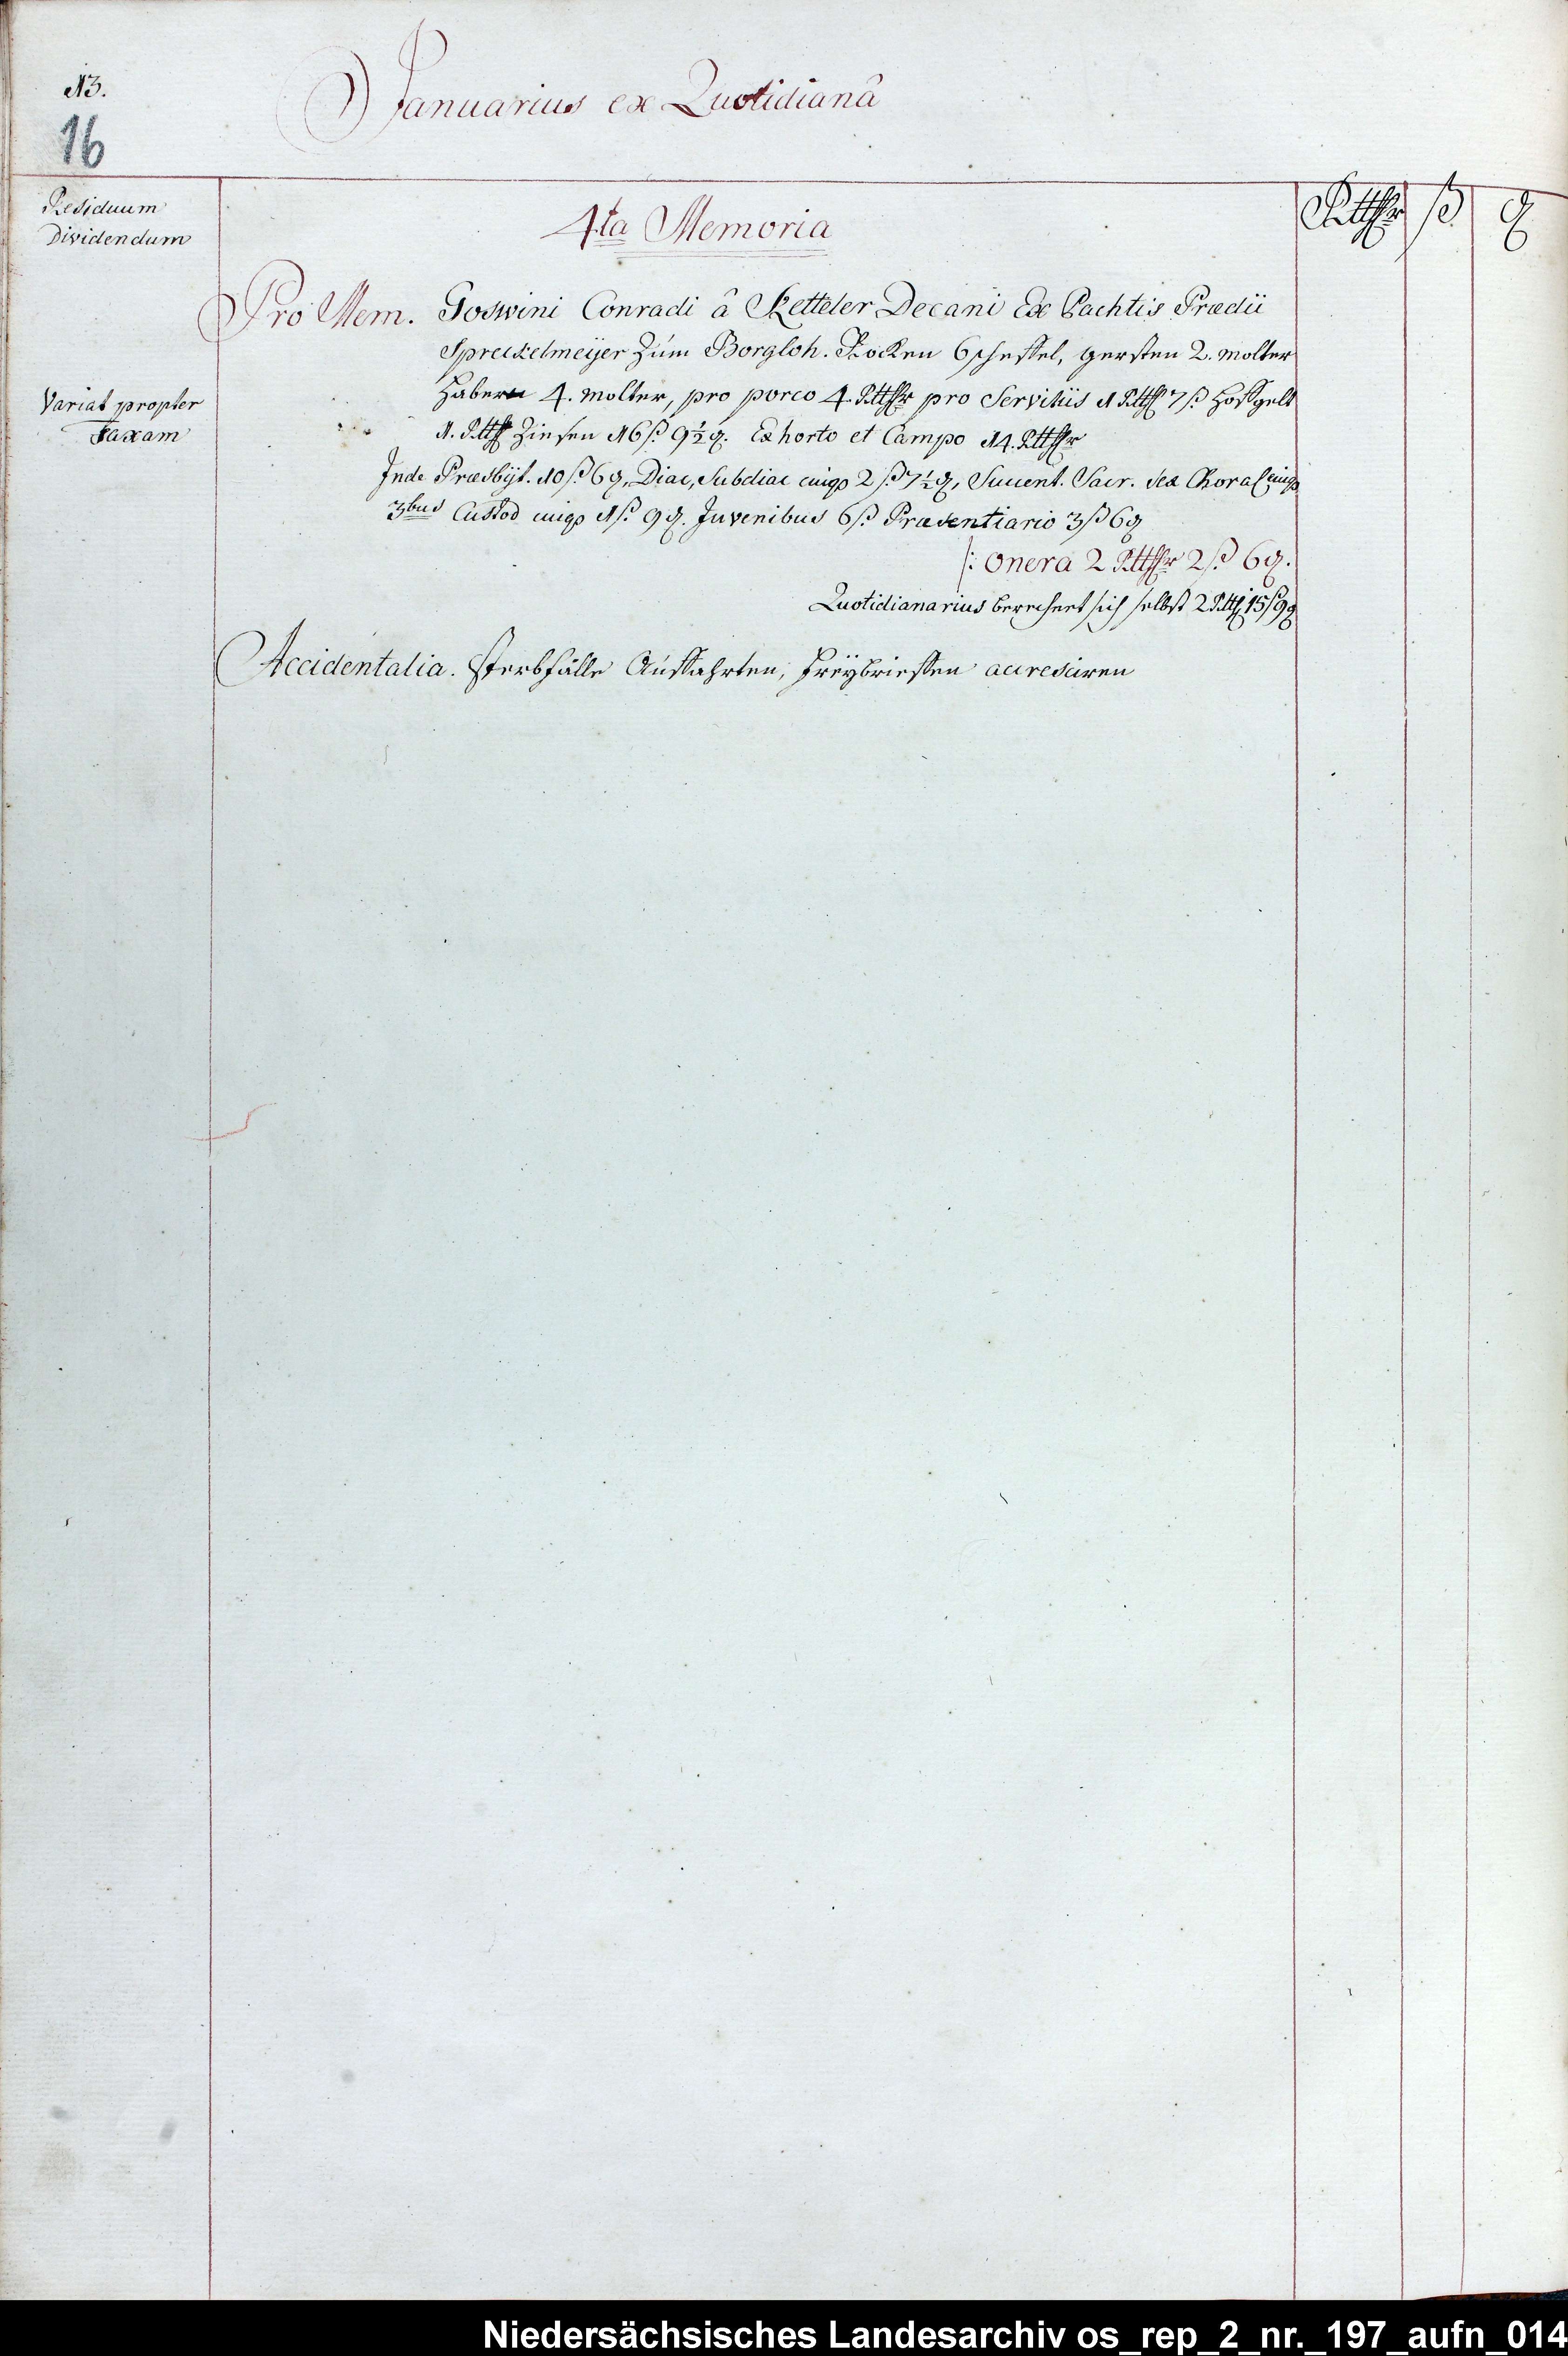 13.
16
Januarius ex Quotidianâ
Residuum
Dividendum
4ta Memoria
Rtthlr ß ₰
Pro Mem. Goswini Conradi â Ketteler Decani Ex Pachtis Prædii
Spreckelmeÿer Zúm Borgloh. Rocken 6 scheffel, gersten 2. molter
Variat propter
Taxam
Habern 4. molter, pro porco 4. Rtthlr pro Servitiis 1 Rtthl 7 ß Hoffgelt
1. Rtthl Zinsen 16 ß 9½ ₰. Ex horto et Campo 14. Rtthlr
Inde Præsbÿt. 10 ß 6 ₰, Diac, Subdiac cuiqs 2 ß 7½ ₰, Succent. Sacr. sex Choral cuiqs
3bus Custod cuiqs 1 ß 9 ₰. Juvenibus 6 ß Præsentiario 3 ß 6 ₰
/: onera 2 Rtthlr 2 ß 6 ₰.
Quotidianarius berechnet sich selbst 2 Rtthl 15 ß 9 ₰
Accidentalia. Sterbfälle Aúffahrten, Freÿbrieffen accresciren
Niedersächsisches Landesarchiv os_rep_2_nr._197_aufn_014